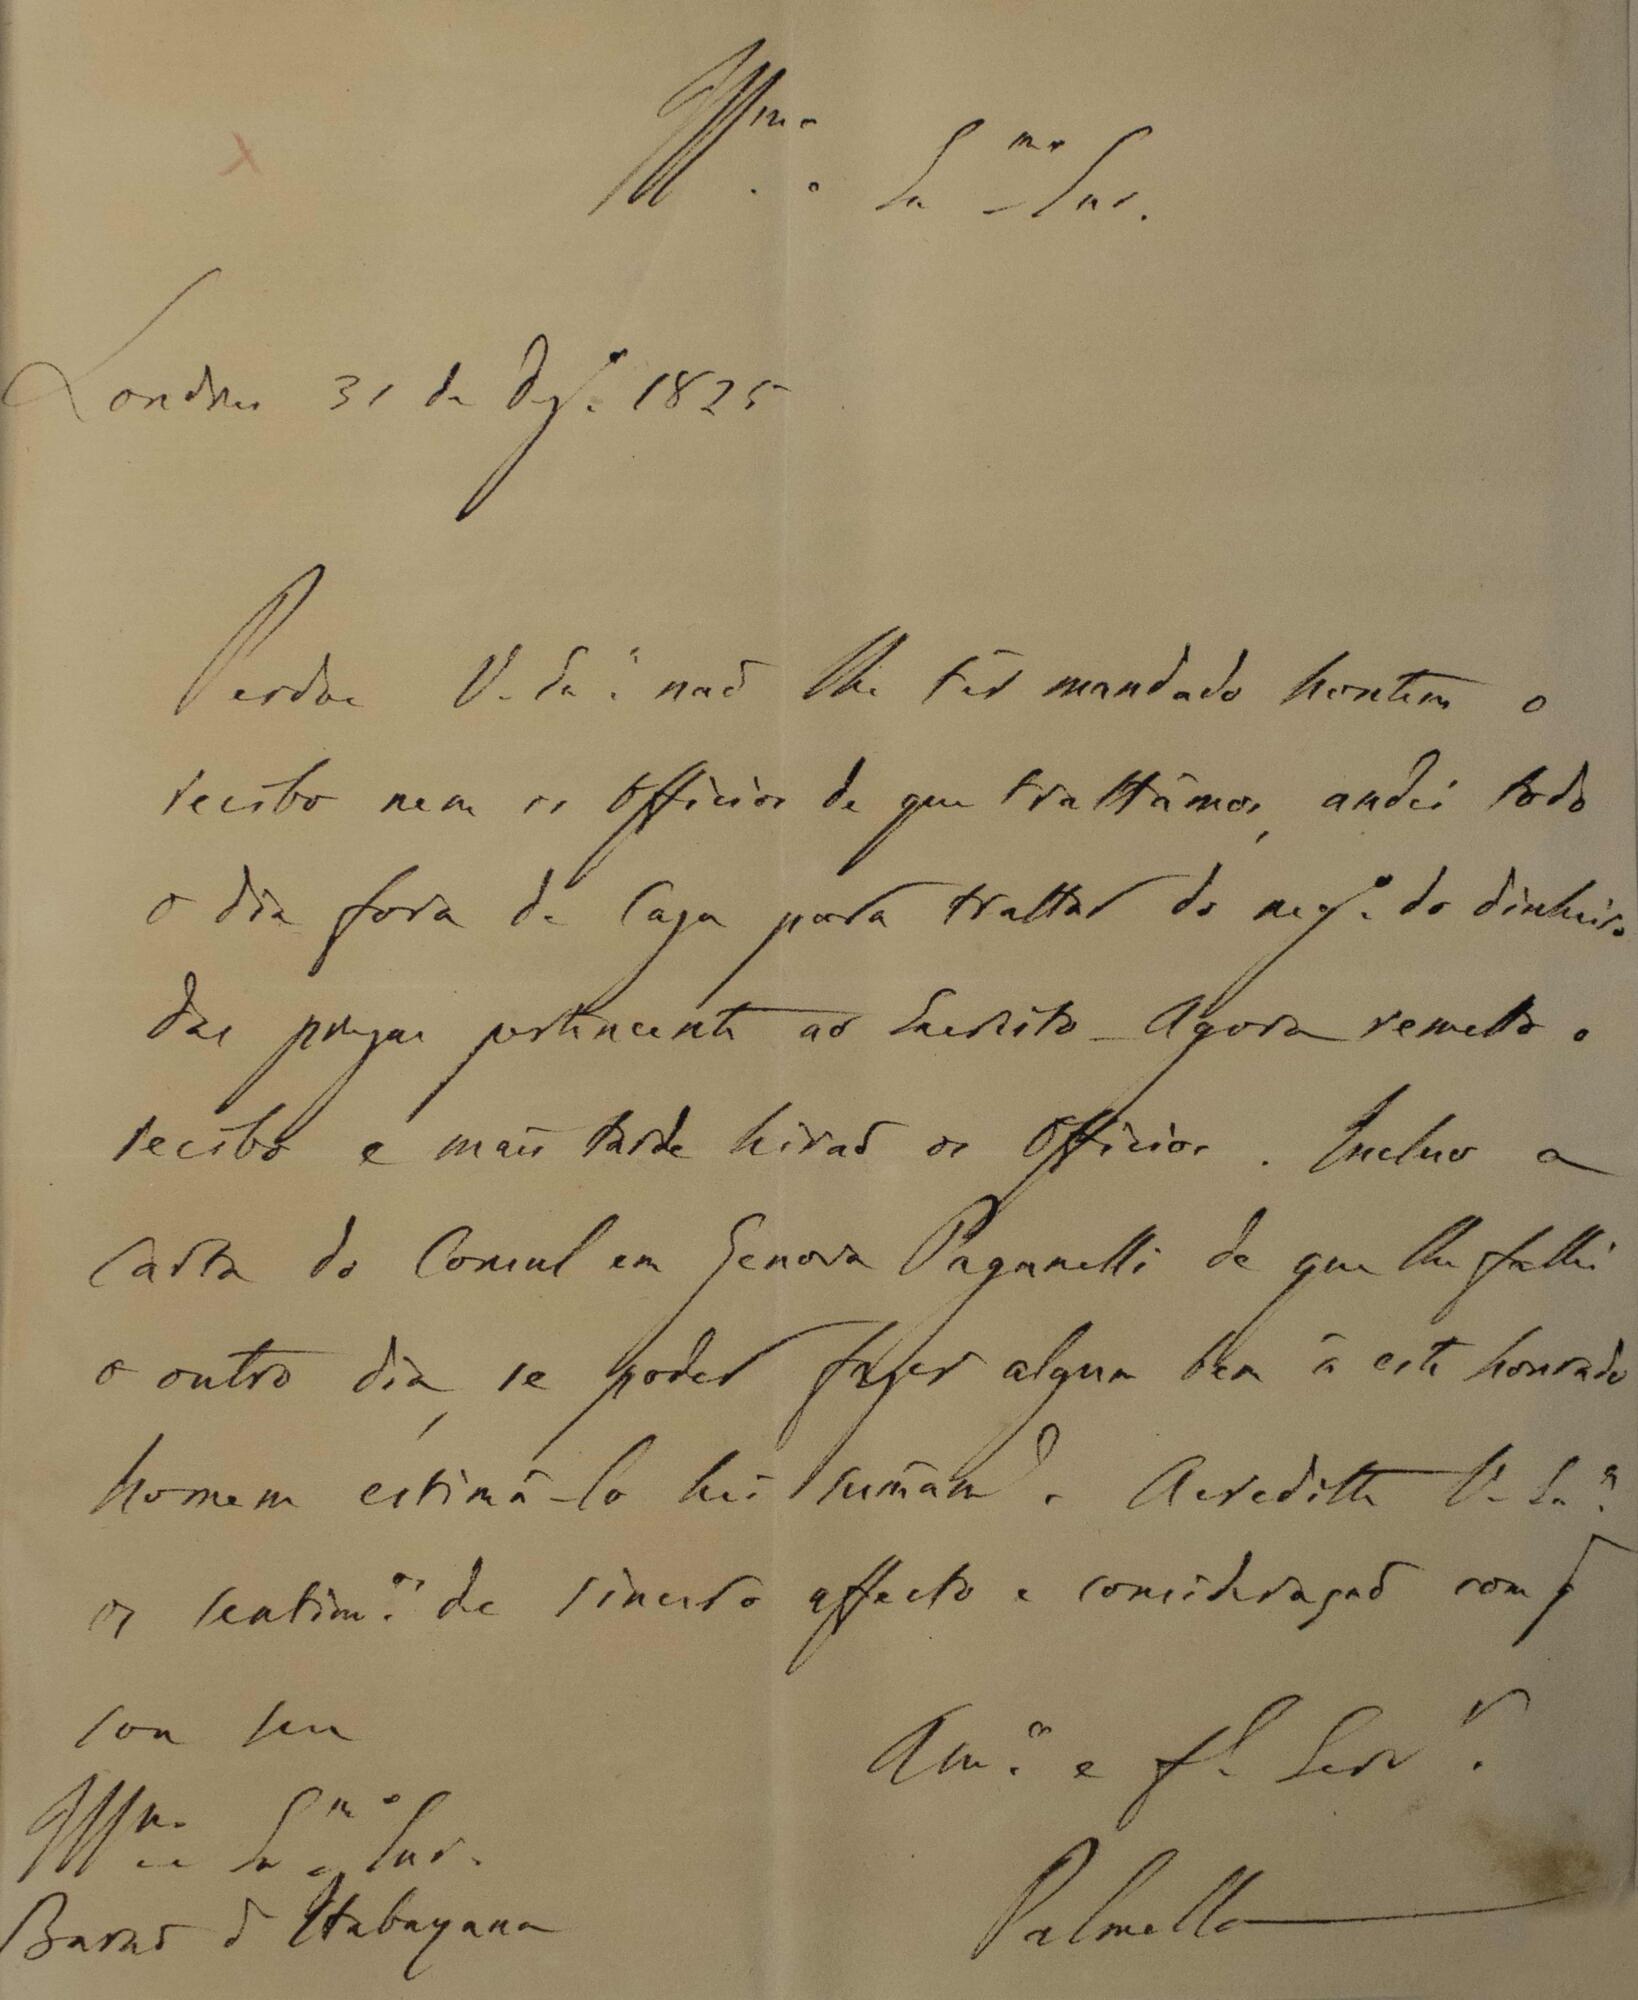 Illmo Exmo Snr.
Londres 31 de Dezo. 1825
Perdoe V. Exa. naõ lhe ter mandado hontem o
recibo nem os Officios de que trattámos, andei todo
o dia fora de Caza para trattar do nego. do dinheiro
das prezas pertencente ao Exercito - Agora remetto o
recibo e mais tarde hiraõ os Officios. Incluo a
Carta do Consul em Genova Paganelli de que lhe fallei
o outro dia, se poder fazer algum bem á este honrado
homem estimá-lo hei summamte. Acreditte V. Exa.
os sentimos. de sincero affecto e consideraçaõ com q
sou seu
Amo. e fl. Servr.
Illmo Exmo Snr.
Baraõ d'Itabayana
Palmella